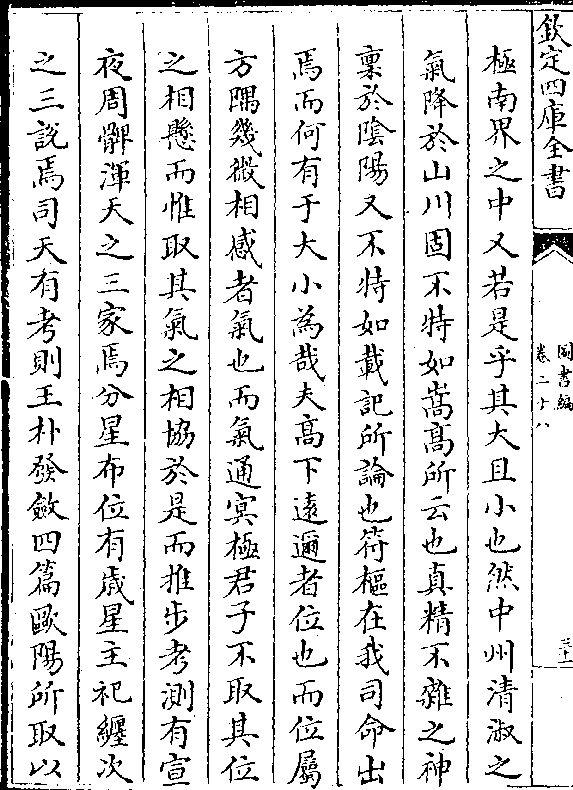 欽定四庫全書
圖書編
卷二十八
三十一
極南界之中又若是乎其大且小也然中州清淑之
氣降於山川固不特如嵩髙所云也真精不雜之神
禀於陰陽又不特如載記所論也符樞在我司命出
焉而何有于大小為哉夫髙下逺邇者位也而位屬
方隅幾微相感者氣也而氣通㝠極君子不取其位
之相懸而惟取其氣之相協於是而推步考測有宣
夜周髀渾天之三家焉分星布位有歲星主祀纒次
之三說焉司天有考則王朴發斂四篇歐陽所取以